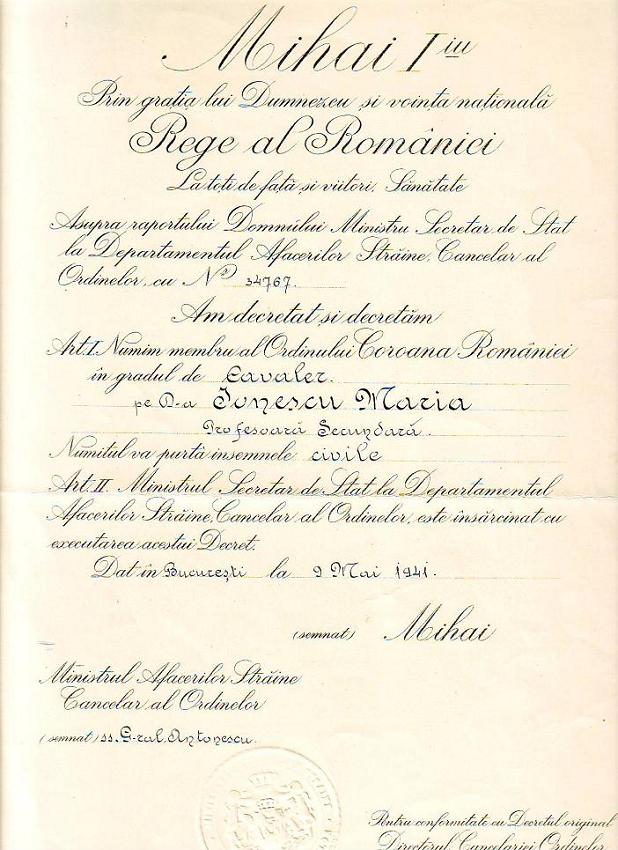 Mihai I iu
Prin grația lui Dumnezeu și voința națională
Rege al României
La toți de față și viitori, Sănătate
Asupra raportului Domnului Ministru Secretar de Stat
la Departamentul Afacerilor Străine, Cancelar al
Ordinelor, cu No 34767.
Am decretat și decretăm
Art. I. Numim membru al Ordinului Coroana României
în gradul de Cavaler.
pe D-a Ionescu Maria
Profesoară Secundară.
Numitul va purtà însemnele civile
Art. II. Ministrul Secretar de Stat la Departamentul
Afacerilor Străine, Cancelar al Ordinelor, este însărcinat cu
executarea acestui Decret.
Dat în București la 9 Mai 1941.
(semnat) Mihai
Ministrul Afacerilor Străine
Cancelar al Ordinelor
(semnat) ss. G-ral. Antonescu.
Pentru conformitate cu Decretul original
Directorul Cancelariei Ordinelor